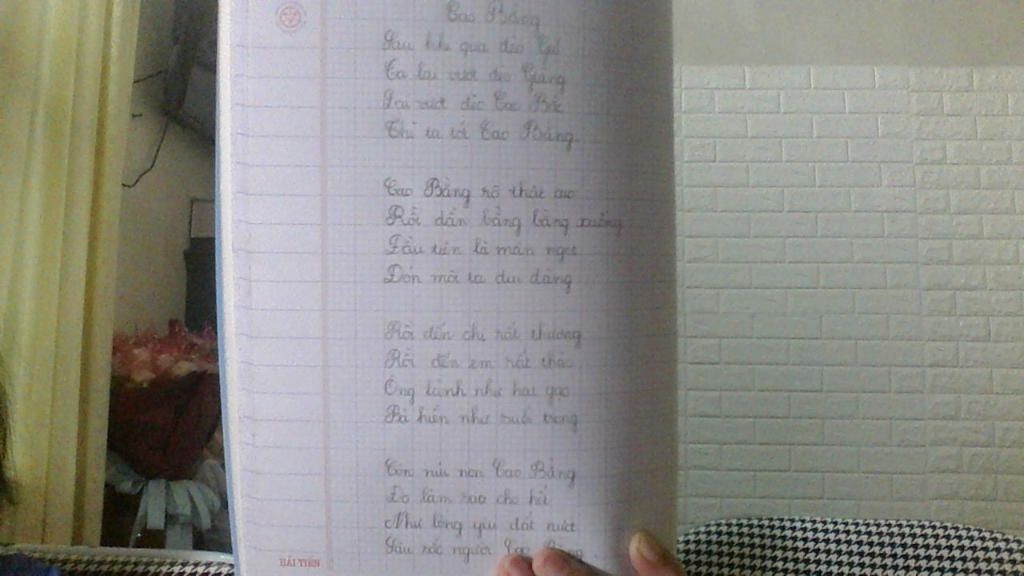 Cao Bằng
Sau khi qua đèo Gió
Ta lại vượt đèo Giàng
Lại vượt đèo Cao Bắc
Thì ta tới Cao Bằng.
Cao Bằng rõ thật cao
Rồi dần bằng bằng xuống
Đầu tiên là mận ngọt
Đón môi ta dịu dàng.
Rồi đến chị rất thương
Rồi đến em rất thảo
Ông lành như hạt gạo
Bà hiền như suối trong
Còn núi non Cao Bằng
Đo làm sao cho hết
Như lòng yêu đất nước
Sâu sắc người Cao Bằng
HẢI TIẾN